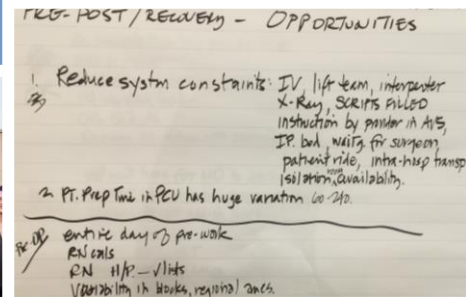 PRE-POST / RECOVERY - OPPORTUNITIES
1. Reduce systm constraints: IV, lift team, interpreter
X-Ray, SCRIPTS FILLED
instruction by provider in AVS,
IP. bed, waitg for surgeon,
patient ride, intra-hosp transp
isolation room availability.
2. PT. Prep Time in PCU has huge variation 60-240.
Pre-OP entire day of pre-work
RN calls
RN H/P - √ lists
Variability in blocks, regional anes.